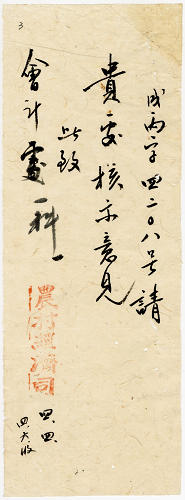 成丙字四二〇八号請
貴處核示意見
此致
會計處一科
農村經濟司
四、四、
3